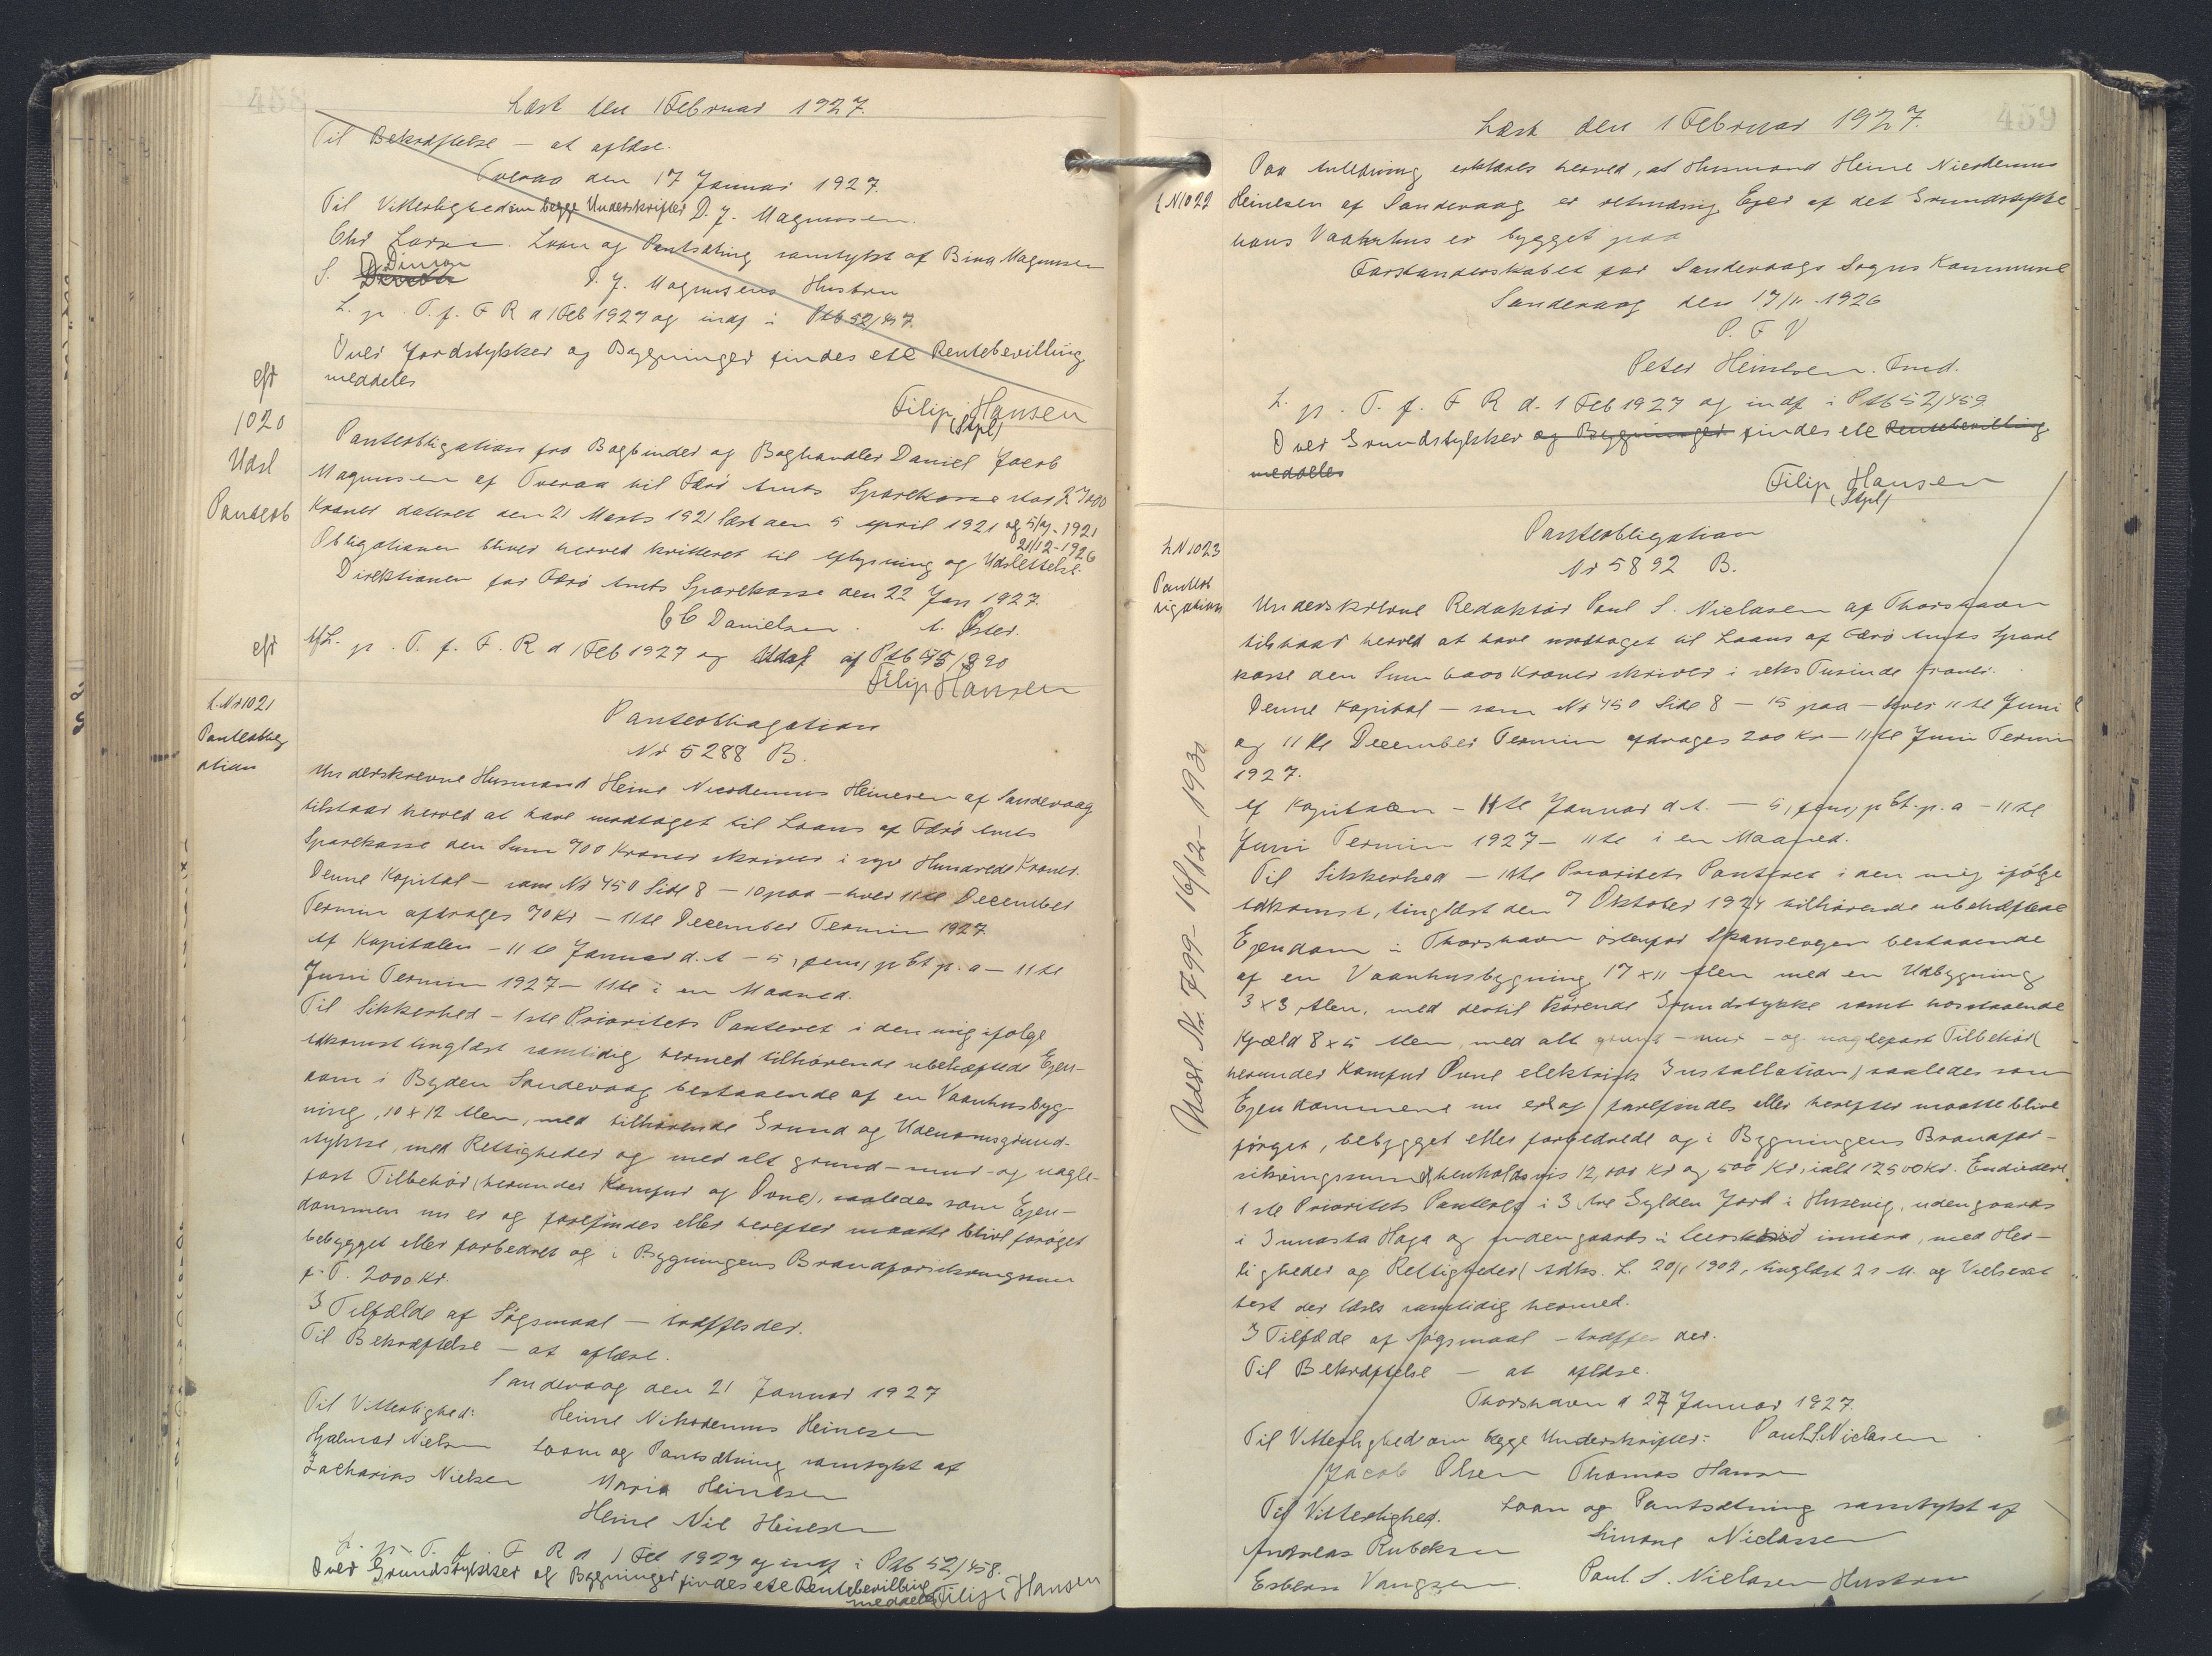 458
Læst den 1 Februar 1927.
Til Bekræftelse — at aflæse.
Tveraa den 17 Januar 1927.
Til Vitterlighed om begge Underskrifter D. J. Magnussen.
Chr Larsen. Laan og Pantsætning samtykt af Bina Magnussen
S. D. J. Magnussens Hustru
L. p. T. f. F R d 1 Feb 1927 og indf i Ptb 52/457.
Over Jordstykker og Bygninger findes ell Rentebevilling
meddeles
Filip Hansen
(Stpl)
eft
1020
Udsl
Panteob
Panteobligation fra Bogbinder og Boghandler Daniel Jacob
Magnussen af Tveraa til Færø Amts Sparekasse stor 27000
Kroner dateret den 21 Marts 1921 læst den 5 April 1921 og 5/7-1921
21/12-1926
Obligationen bliver herved kvitteret til Aflysning og Udslettelse.
Direktionen for Færø Amts Sparekasse den 22 Jan 1927.
C C Danielsen. A. Øster.
eft
Afl. p. T. f. F. R d 1 Feb 1927 og Udsl af Ptb 45/890
Filip Hansen
L. Nr 1021
Panteoblig
ation
Panteobligation
Nr 5288 B.
Underskrevne Husmand Heine Nicodemus Heinesen af Sandevaag
tilstaar herved at have modtaget til Laans af Færø Amts
Sparekasse den Sum 700 Kroner skriver i syv Hundrede Kroner.
Denne Kapital — som Nr 450 Side 8 — 10 paa — hver 11te December
Termin afdrages 70 Kr — 11te December Termin 1927.
Af Kapitalen — 11te Januar d. A — 5, fem, p Ct p. a — 11te
Juni Termin 1927 — 11te i en Maaned.
Til Sikkerhed — 1ste Prioritets Panteret i den mig ifølge
Adkomst tinglæst samtidig hermed tilhørende ubehæftede Ejen-
dom i Bygden Sandevaag bestaaende af en Vaanhusbyg-
ning, 10 x 12 Alen, med tilhørende Grund og Udenomsgrund-
stykke, med Rettigheder og med alt grund- mur- og nagle-
fast Tilbehør (herunder Komfur og Ovne), saaledes som Ejen-
dommen nu er og forefindes eller herefter maatte blive forøget
bebygget eller forbedret og i Bygningens Brandforsikringssum
p. T. 2000 Kr.
I Tilfælde af Søgsmaal — træffes der.
Til Bekræftelse — at aflæse.
Sandevaag den 21 Januar 1927
Til Vitterlighed: Heine Nikodemus Heinesen
Hjalmar Nielsen Laan og Pantsætning samtykt af
Zacharias Nielsen Maria Heinesen
Heine Nic Heinesen
L. p. T. f. F R d 1 Feb 1927 og indf i Ptb 52/458.
Over Grundstykker og Bygninger findes ell Rentebevilling
meddeles Filip Hansen
459
Læst den 1 Februar 1927.
L N 1022
Paa Anledning erklæres herved, at Husmand Heine Nicodemus
Heinesen af Sandevaag er retmæssig Ejer af det Grundstykke
hans Vaanhus er bygget paa
Forstanderskabet for Sandevaags Sogns Kommune
Sandevaag den 17/11 1926
P. F V
Peter Heinesen. Fmd.
L. p. T. f. F R d. 1 Feb 1927 og indf i Ptb 52/459.
Over Grundstykker og Bygninger findes ell Rentebevilling
meddeles
Filip Hansen
(Stpl)
L N 1023
Panteob
ligation
Udsl Nr. 799 - 16/12 - 1930
Panteobligation
Nr 5892 B.
Underskrevne Redaktør Poul S. Niclasen af Thorshavn
tilstaar herved at have modtaget til Laans af Færø Amts Spare
kasse den Sum 6000 Kroner skriver i seks Tusinde Kroner.
Denne Kapital — som Nr 450 Side 8 — 15 paa — hver 11te Juni
og 11te December Termin afdrages 200 Kr — 11te Juni Termin
1927.
Af Kapitalen — 11te Januar d. A. — 5, fem, p Ct. p. a — 11te
Juni Termin 1927 — 11te i en Maaned.
Til Sikkerhed — 1ste Prioritets Panteret i den mig ifølge
Adkomst, tinglæst den 7 Oktober 1924 tilhørende ubehæftede
Ejendom i Thorshavn østenfor Skansevegen bestaaende
af en Vaanhusbygning 17 x 11 Alen med en Udbygning
3 x 3 Alen, med dertil hørende Grundstykke samt hosstaaende
Kjæld 8 x 5 Alen, med alt grund- mur- og naglefast Tilbehør (
herunder Komfur Ovne elektrisk Installation) saaledes som
Ejendommene nu er og forefindes eller herefter maatte blive
forøget, bebygget eller forbedrede og i Bygningens Brandfor-
sikringssum henholdsvis 12,000 Kr og 500 Kr, ialt 12500 Kr. Endvidere
1ste Prioritets Panteret i 3, tre Gylden Jord i Husevig, udengaards
i Innasta Haga og indengaards i innara, med Her-
ligheder og Rettigheder (Adks. L. 20/1 1902, tinglæst 2 s M. og Vielsesat
test der læses samtidig hermed.
I Tilfælde af Søgsmaal — træffes der.
Til Bekræftelse — at aflæse.
Thorshavn d 27 Januar 1927.
Til Vitterlighed om begge Underskrifter: Poul S. Niclasen
Jacob Olsen Thomas Hansen
Til Vitterlighed. Laan og Pantsætning samtykt af
Andreas Rubeksen Simone Niclassen
Esbern Vangsen. Poul S. Niclasen Hustru